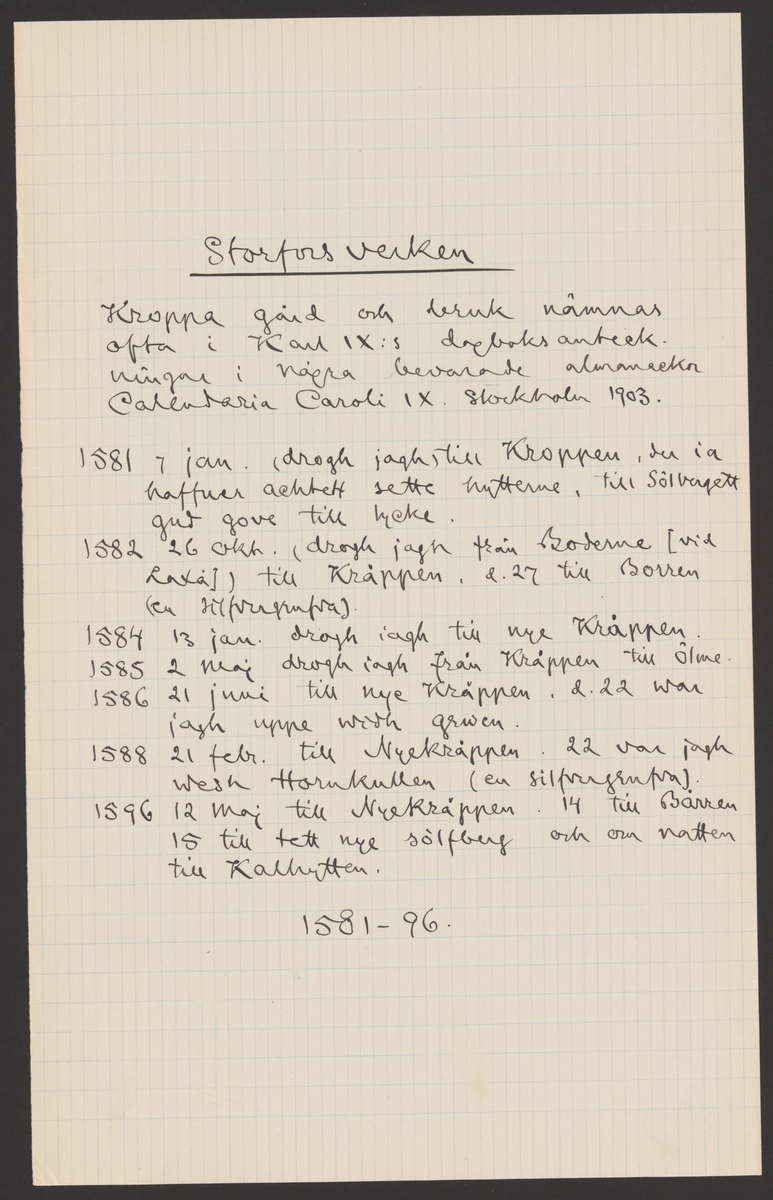 Storfors verken
Kroppa gård och bruk nämnas
ofta i Karl IX:s dagboksanteck-
ningar i några bevarade almanackor
Calendaria Caroli IX. Stockholm 1903.
1581 7 jan. (drogh jagh) till Kroppen, der ia
haffuer achtett sette hytterne, till Sölbergett
gud gove till lycke.
1582 26 okh. (drogh jagh från Boderne [vid
Laxå]) till Kråppen, d. 27 till Borren
(en silfvergrufva).
1584 13 jan. drogh iagh till nye Kråppen.
1585 2 maj drogh iagh från Kråppen till Ölme.
1586 21 juni till nye Kråppen, d. 22 war
jagh uppe widh grwen.
1588 21 febr. till Nyekråppen. 22 var jagh
wedh Hornkullen (en silfvergrufva).
1596 12 maj till Nyekråppen. 14 till Bårren
15 till tett nye sölfberg och om natten
till Kalhytten.
1581-96.